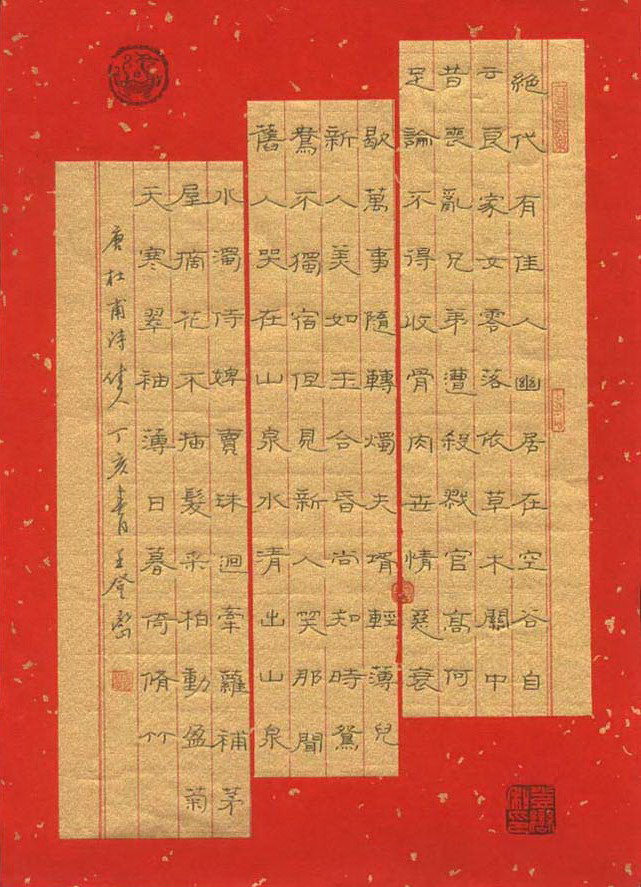 絕代有佳人幽居在空谷自
云良家女零落依草木關中
昔喪亂兄弟遭殺戮官高何
足論不得收骨肉世情惡衰
歇萬事隨轉燭夫壻輕薄兒
新人美如玉合昏尚知時鴛
鴦不獨宿但見新人笑那聞
舊人哭在山泉水清出山泉
水濁侍婢賣珠迴牽蘿補茅
屋摘花不插髮采柏動盈菊
天寒翠袖薄日暮倚脩竹
唐杜甫诗佳人丁亥書王登峦